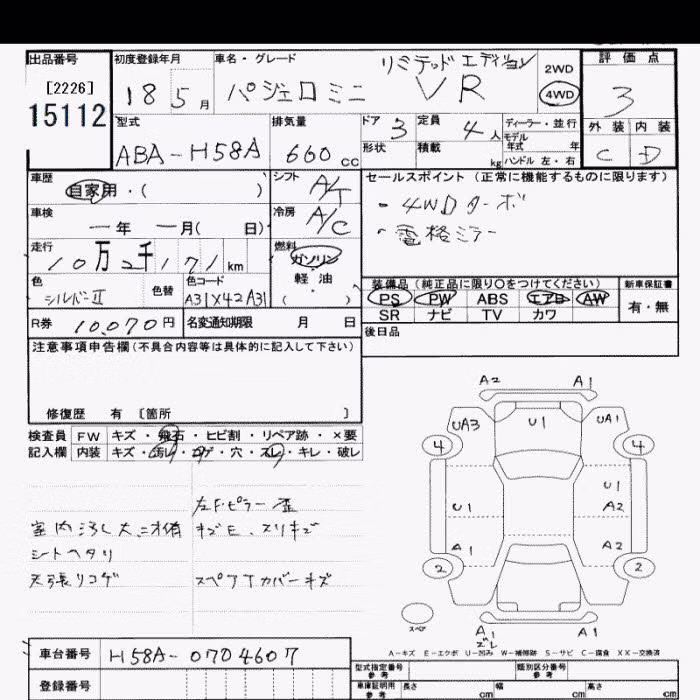 出品番号 初度登録年月 車名・グレード リミテッド エディション 2WD 評価点
[2226] 18 5月 パジェロミニ VR 4WD 3
15112
型式 排気量 ドア 3 定員 4人 ディーラー・並行 外装 内装
ABA-H58A 660cc 形状 積載 kg モデル年式 年 C D
ハンドル 左・右
車歴 シフト A/T セールスポイント (正常に機能するものに限ります)
自家用・( ) ・4WDターボ
車検 冷房 A/C ・電格ミラー
ー年 ー月( 日)
走行 燃料
10万2千171km ガソリン
色 色替 色コード 軽油 装備品 (純正品に限り○をつけてください) 新車保証書
シルバーII A31X42A31 ( ) PS PW ABS エアB AW 有・無
SR ナビ TV カワ
R券 10,070円 名変通知期限 月 日 後日品
注意事項申告欄(不具合内容等は具体的に記入して下さい)
修復歴 有 〔箇所 〕
検査員 FW キズ・飛石・ヒビ割・リペア跡・×要
記入欄 内装 キズ・汚レ・コゲ・穴・スレ・キレ・破レ
左Fピラー歪
室内汚レ大 キズE、スリキズ
シートヘタリ
天張リコゲ スペアTカバーキズ
A2 A1
UA3 U1 UA1
4 4
U1 U1
A2
A1 A2
2 2
スペア A1 A1
ズレ
A-キズ E-エクボ U-凹み W-補修跡 S-サビ C-腐食 XX-交換済
車台番号 H58A-0704607
登録番号
型式指定番号 参考 類別区分番号 参考
車庫証明用 参考 長さ cm 幅 cm 高さ cm